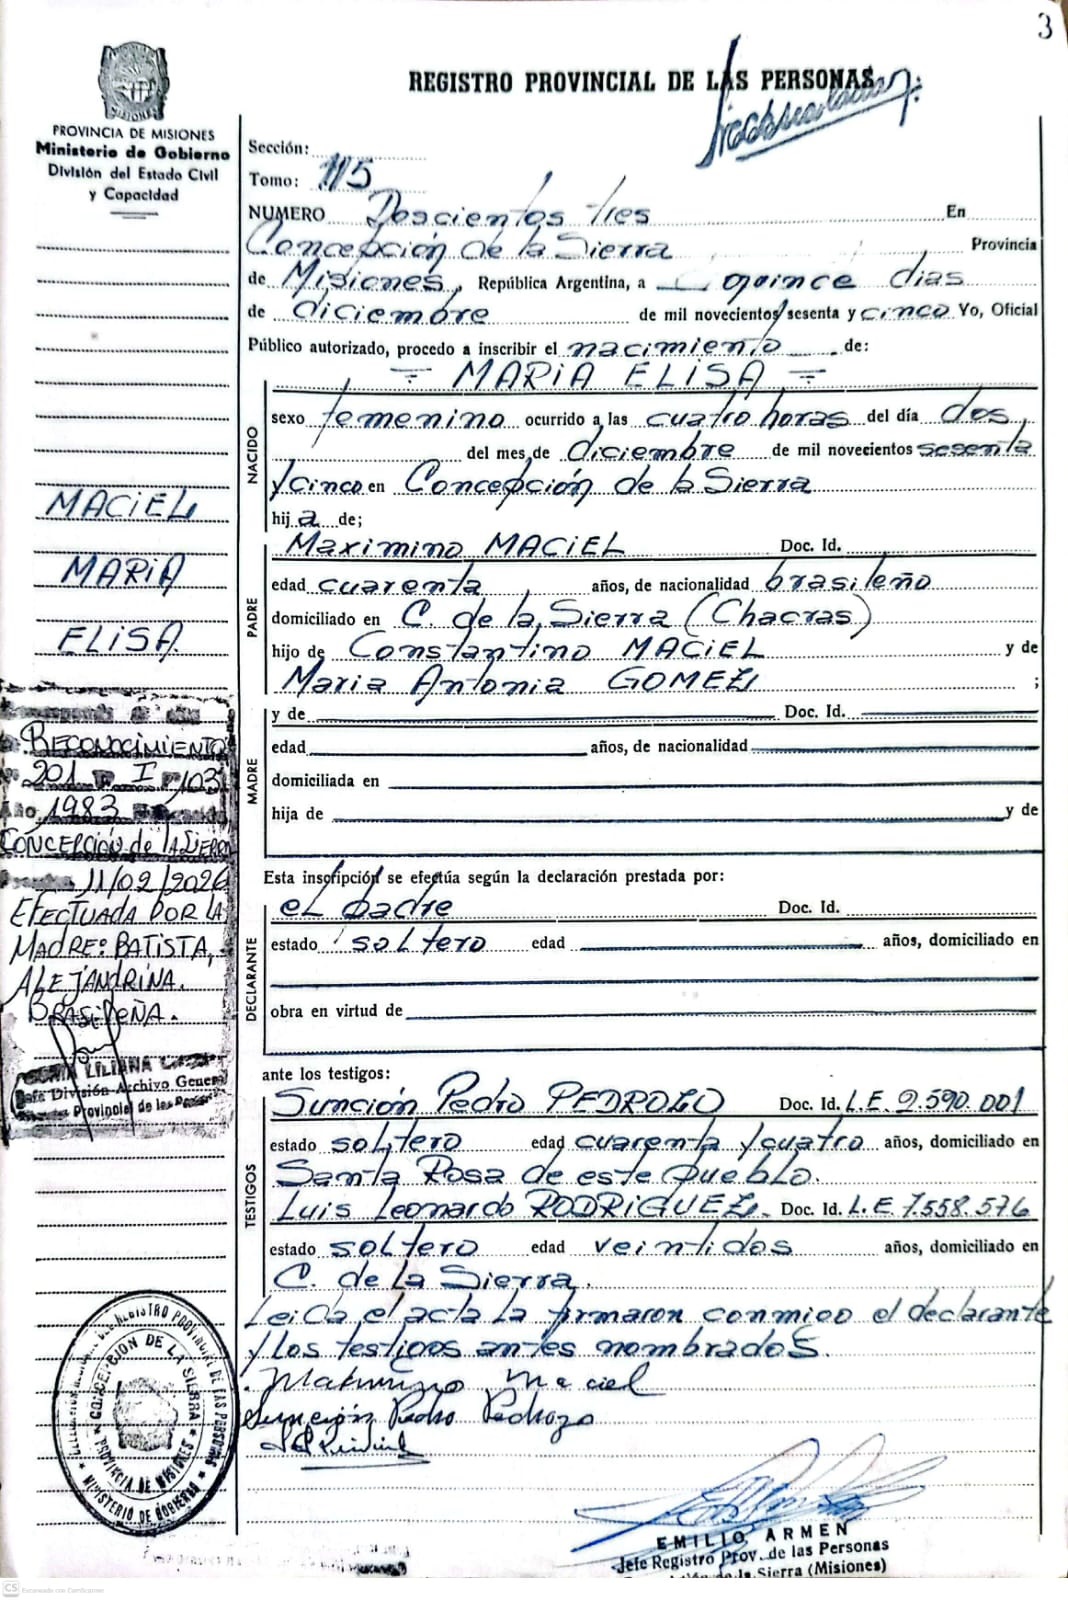 3
REGISTRO PROVINCIAL DE LAS PERSONAS
PROVINCIA DE MISIONES
Ministerio de Gobierno
División del Estado Civil
y Capacidad
Sección:
Tomo: 1/5
NUMERO Doscientos tres En
Concepción de la Sierra Provincia
de Misiones, República Argentina, a quince dias
de diciembre de mil novecientos sesenta y cinco Yo, Oficial
Público autorizado, procedo a inscribir el nacimiento de:
MARIA ELISA
NACIDO
sexo femenino ocurrido a las cuatro horas del día dos
del mes de diciembre de mil novecientos sesenta
y cinco en Concepción de la Sierra
hija de;
MACIEL
MARIA
ELISA
PADRE
Maximino MACIEL Doc. Id.
edad cuarenta años, de nacionalidad brasileño
domiciliado en C. de la Sierra (Chacras)
hijo de Constantino MACIEL y de
Maria Antonia GOMEZ ;
MADRE
y de Doc. Id.
edad años, de nacionalidad
domiciliada en
hija de y de
RECONOCIMIENTO
201 I 103
Año 1983
CONCEPCIÓN de la SIERRA
11/02/2026
EFECTUADA POR LA
MADRE: BATISTA,
ALEJANDRINA.
BRASILEÑA.
LILIANA
Jefa División Archivo General
Provincial de las Personas
Esta inscripción se efectúa según la declaración prestada por:
DECLARANTE
el padre Doc. Id.
estado soltero edad años, domiciliado en
obra en virtud de
ante los testigos:
TESTIGOS
Sunción Pedro PEDROZO Doc. Id. L.E. 2.590.001
estado soltero edad cuarenta y cuatro años, domiciliado en
Santa Rosa de este pueblo.
Luis Leonardo RODRIGUEZ. Doc. Id. L.E. 7.558.576
estado soltero edad veintidos años, domiciliado en
C. de la Sierra.
Leida el acta la firmaron conmigo el declarante
y los testigos antes nombrados.
Maximino Maciel
Sunción Pedro Pedrozo
REGISTRO PROVINCIAL DE LAS PERSONAS
CONCEPCION DE LA SIERRA
PROVINCIA DE MISIONES
MINISTERIO DE GOBIERNO
EMILIO ARMEN
Jefe Registro Prov. de las Personas
de la Sierra (Misiones)
CS Escaneado con CamScanner